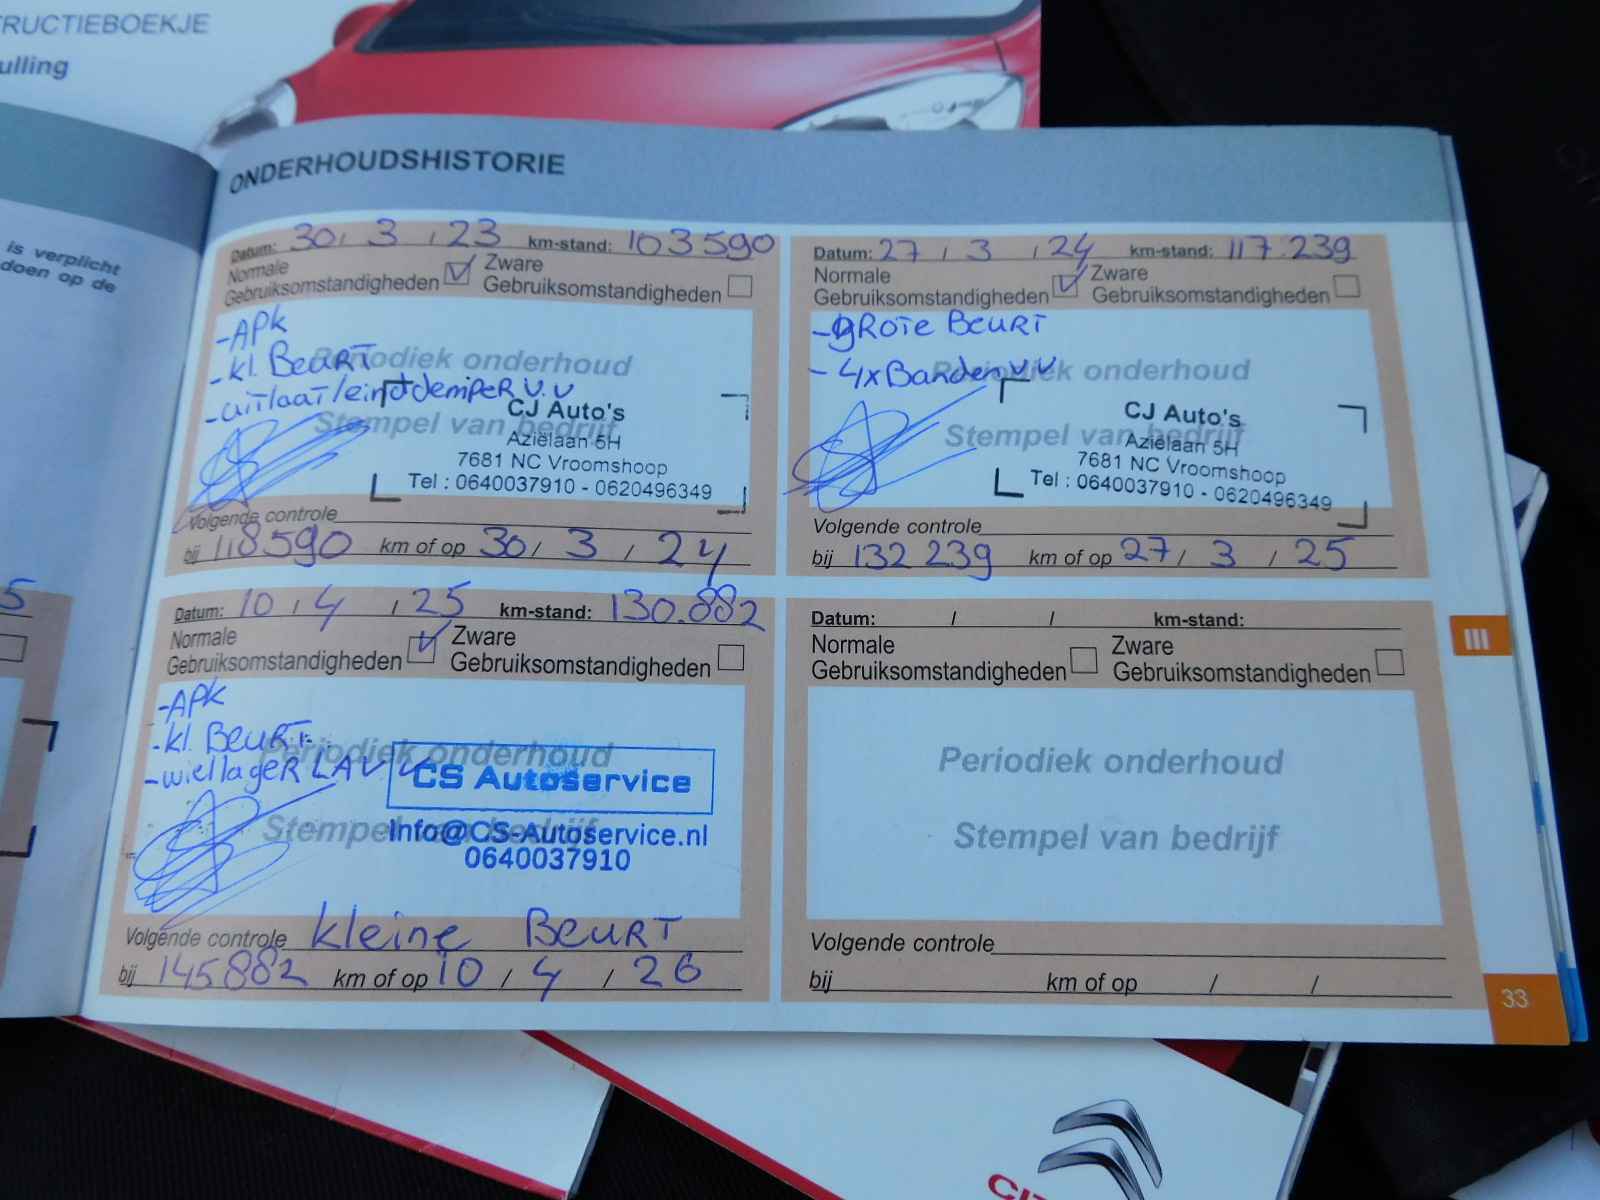 RUCTIEBOEKJE
ulling
is verplicht
doen op de
5
ONDERHOUDSHISTORIE
Datum: 30 / 3 / 23 km-stand: 103590
Normale
Gebruiksomstandigheden
Zware
Gebruiksomstandigheden
-APK
-kl. BeuRT
-uitlaat/einddempeR V.V
Periodiek onderhoud
Stempel van bedrijf
CJ Auto's
Aziëlaan 5H
7681 NC Vroomshoop
Tel : 0640037910 - 0620496349
Volgende controle
bij 118590 km of op 30 / 3 / 24
Datum: 27 / 3 / 24 km-stand: 117.239
Normale
Gebruiksomstandigheden
Zware
Gebruiksomstandigheden
-gRoTe BeuRT
- 4x Banden V.V
Periodiek onderhoud
Stempel van bedrijf
CJ Auto's
Aziëlaan 5H
7681 NC Vroomshoop
Tel : 0640037910 - 0620496349
Volgende controle
bij 132239 km of op 27 / 3 / 25
Datum: 10 / 4 / 25 km-stand: 130.882
Normale
Gebruiksomstandigheden
Zware
Gebruiksomstandigheden
-APK
-kl. BeuRT.
-wiellageR LAV
Periodiek onderhoud
Stempel van bedrijf
CS Autoservice
Info@CS-Autoservice.nl
0640037910
Volgende controle kleine BeuRT
bij 145882 km of op 10 / 4 / 26
Datum: / / km-stand:
Normale
Gebruiksomstandigheden
Zware
Gebruiksomstandigheden
Periodiek onderhoud
Stempel van bedrijf
Volgende controle
bij km of op / /
III
33
CI